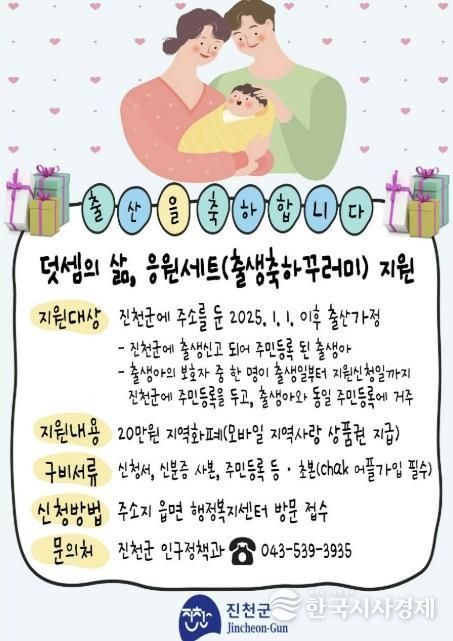 출산을축하합니다
덧셈의 삶, 응원세트(출생축하꾸러미) 지원
지원대상 진천군에 주소를 둔 2025. 1. 1. 이후 출산가정
- 진천군에 출생신고 되어 주민등록 된 출생아
- 출생아의 보호자 중 한 명이 출생일부터 지원신청일까지
진천군에 주민등록을 두고, 출생아와 동일 주민등록에 거주
지원내용 20만원 지역화폐(모바일 지역사랑 상품권 지급)
구비서류 신청서, 신분증 사본, 주민등록 등·초본(chak 어플가입 필수)
신청방법 주소지 읍면 행정복지센터 방문 접수
문의처 진천군 인구정책과 ☎ 043-539-3935
진천군
Jincheon-Gun
한국시사경제